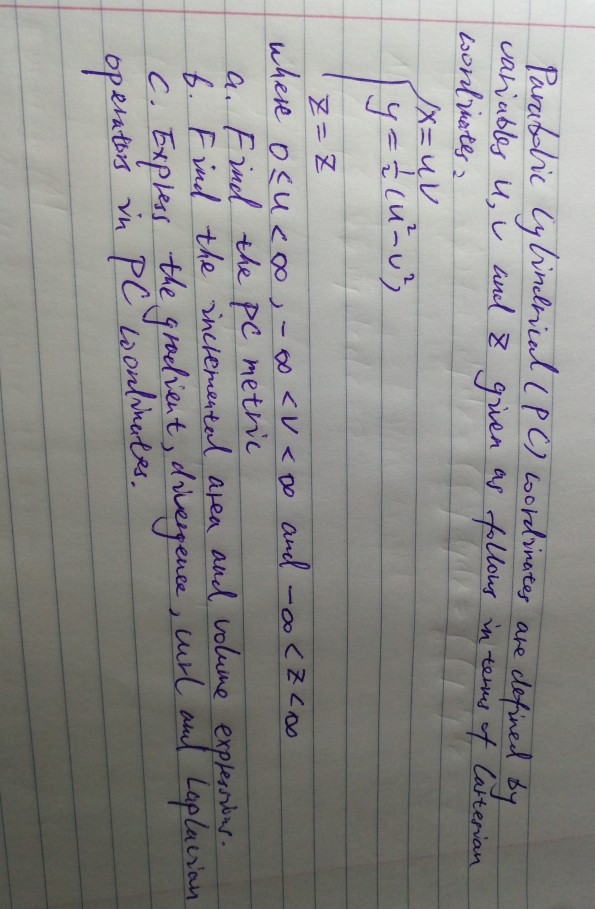 Parabolic Cylindrical (PC) coordinates are defined by
variables u, v and z given as follows in terms of Cartesian
coordinates:
x = uv
y = 1/2 (u² - v²)
z = z
where 0 ≤ u < ∞, -∞ < v < ∞ and -∞ < z < ∞
a. Find the PC metric
b. Find the incremental area and volume expressions.
c. Express the gradient, divergence, curl and Laplacian
operators in PC coordinates.